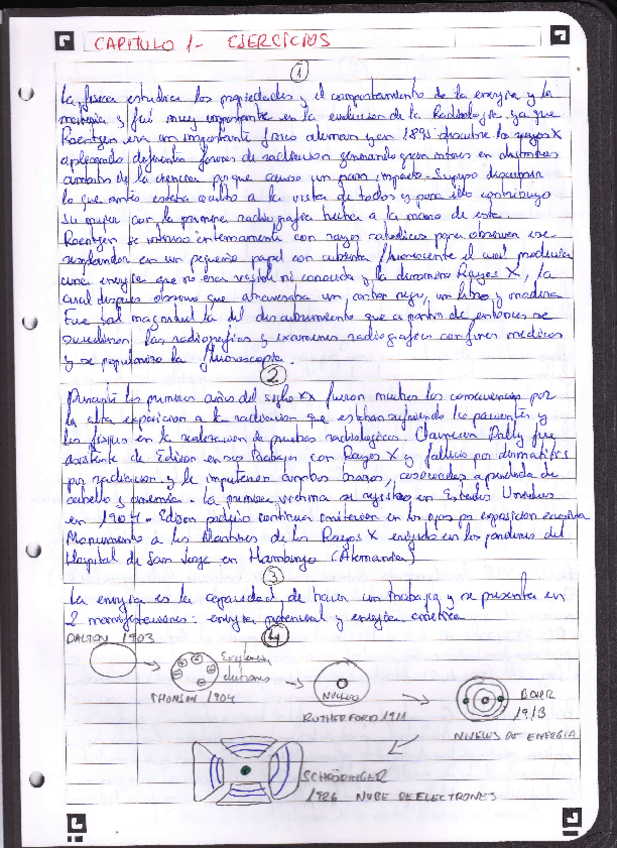 CAPITULO 1- EJERCICIOS
1
La física estudia las propiedades y el comportamiento de la energia y la
materia y fué muy importante en la evolucion de la Radiologia, ya que
Roentgen era un importante físico aleman y en 1895 descubre los rayos X
aplicando diferentes formas de radiacion generando gran interes en distintos
ambitos de la ciencia porque causo un gran impacto. Supuso descubrir
lo que antes estaba oculto a la vista de todos y para ello contribuyo
su mujer con la primera radiografia hecha a la mano de esta.
Roentgen se intereso internamente con rayos catodicos para observar ese
resplandor en un pequeño papel con cubierta fluorescente el cual producia
una energia que no era visible ni conocida y la denomino Rayos X, la
cual despues observo que atravesaba un carton negro, un libro y madera
Fue tal magnitud la del descubrimiento que a partir de entonces se
sucedieron las radiografias y examenes radiograficos con fines medicos
y se popularizo la fluoroscopia.
2
Durante los primeros años del siglo XX fueron muchas las consecuencias por
la alta exposicion a la radiacion que estaban sufriendo los pacientes y
los fisicos en la realizacion de pruebas radiologicas. Clarence Dally fue
asistente de Edison en sus trabajos con Rayos X y fallecio por dermatitis
por radiacion y le amputaron ambos brazos, asociadas a perdida de
cabello y anemia. La primera victima se registro en Estados Unidos
en 1904. Edison padecio continua irritacion en los ojos por exposicion
Monumento a los Martires de los Rayos X erigido en los jardines del
Hospital de San Jorge en Hamburgo (Alemania)
3
La energia es la capacidad de hacer un trabajo y se presenta en
2 manifestaciones: energia potencial y energia cinetica
4
DALTON 1903
electrones
THOMSON 1904
NUCLEO
RUTHERFORD 1911
BOHR
1913
NIVELES DE ENERGIA
SCHRÖDINGER
1926 NUBE DE ELECTRONES